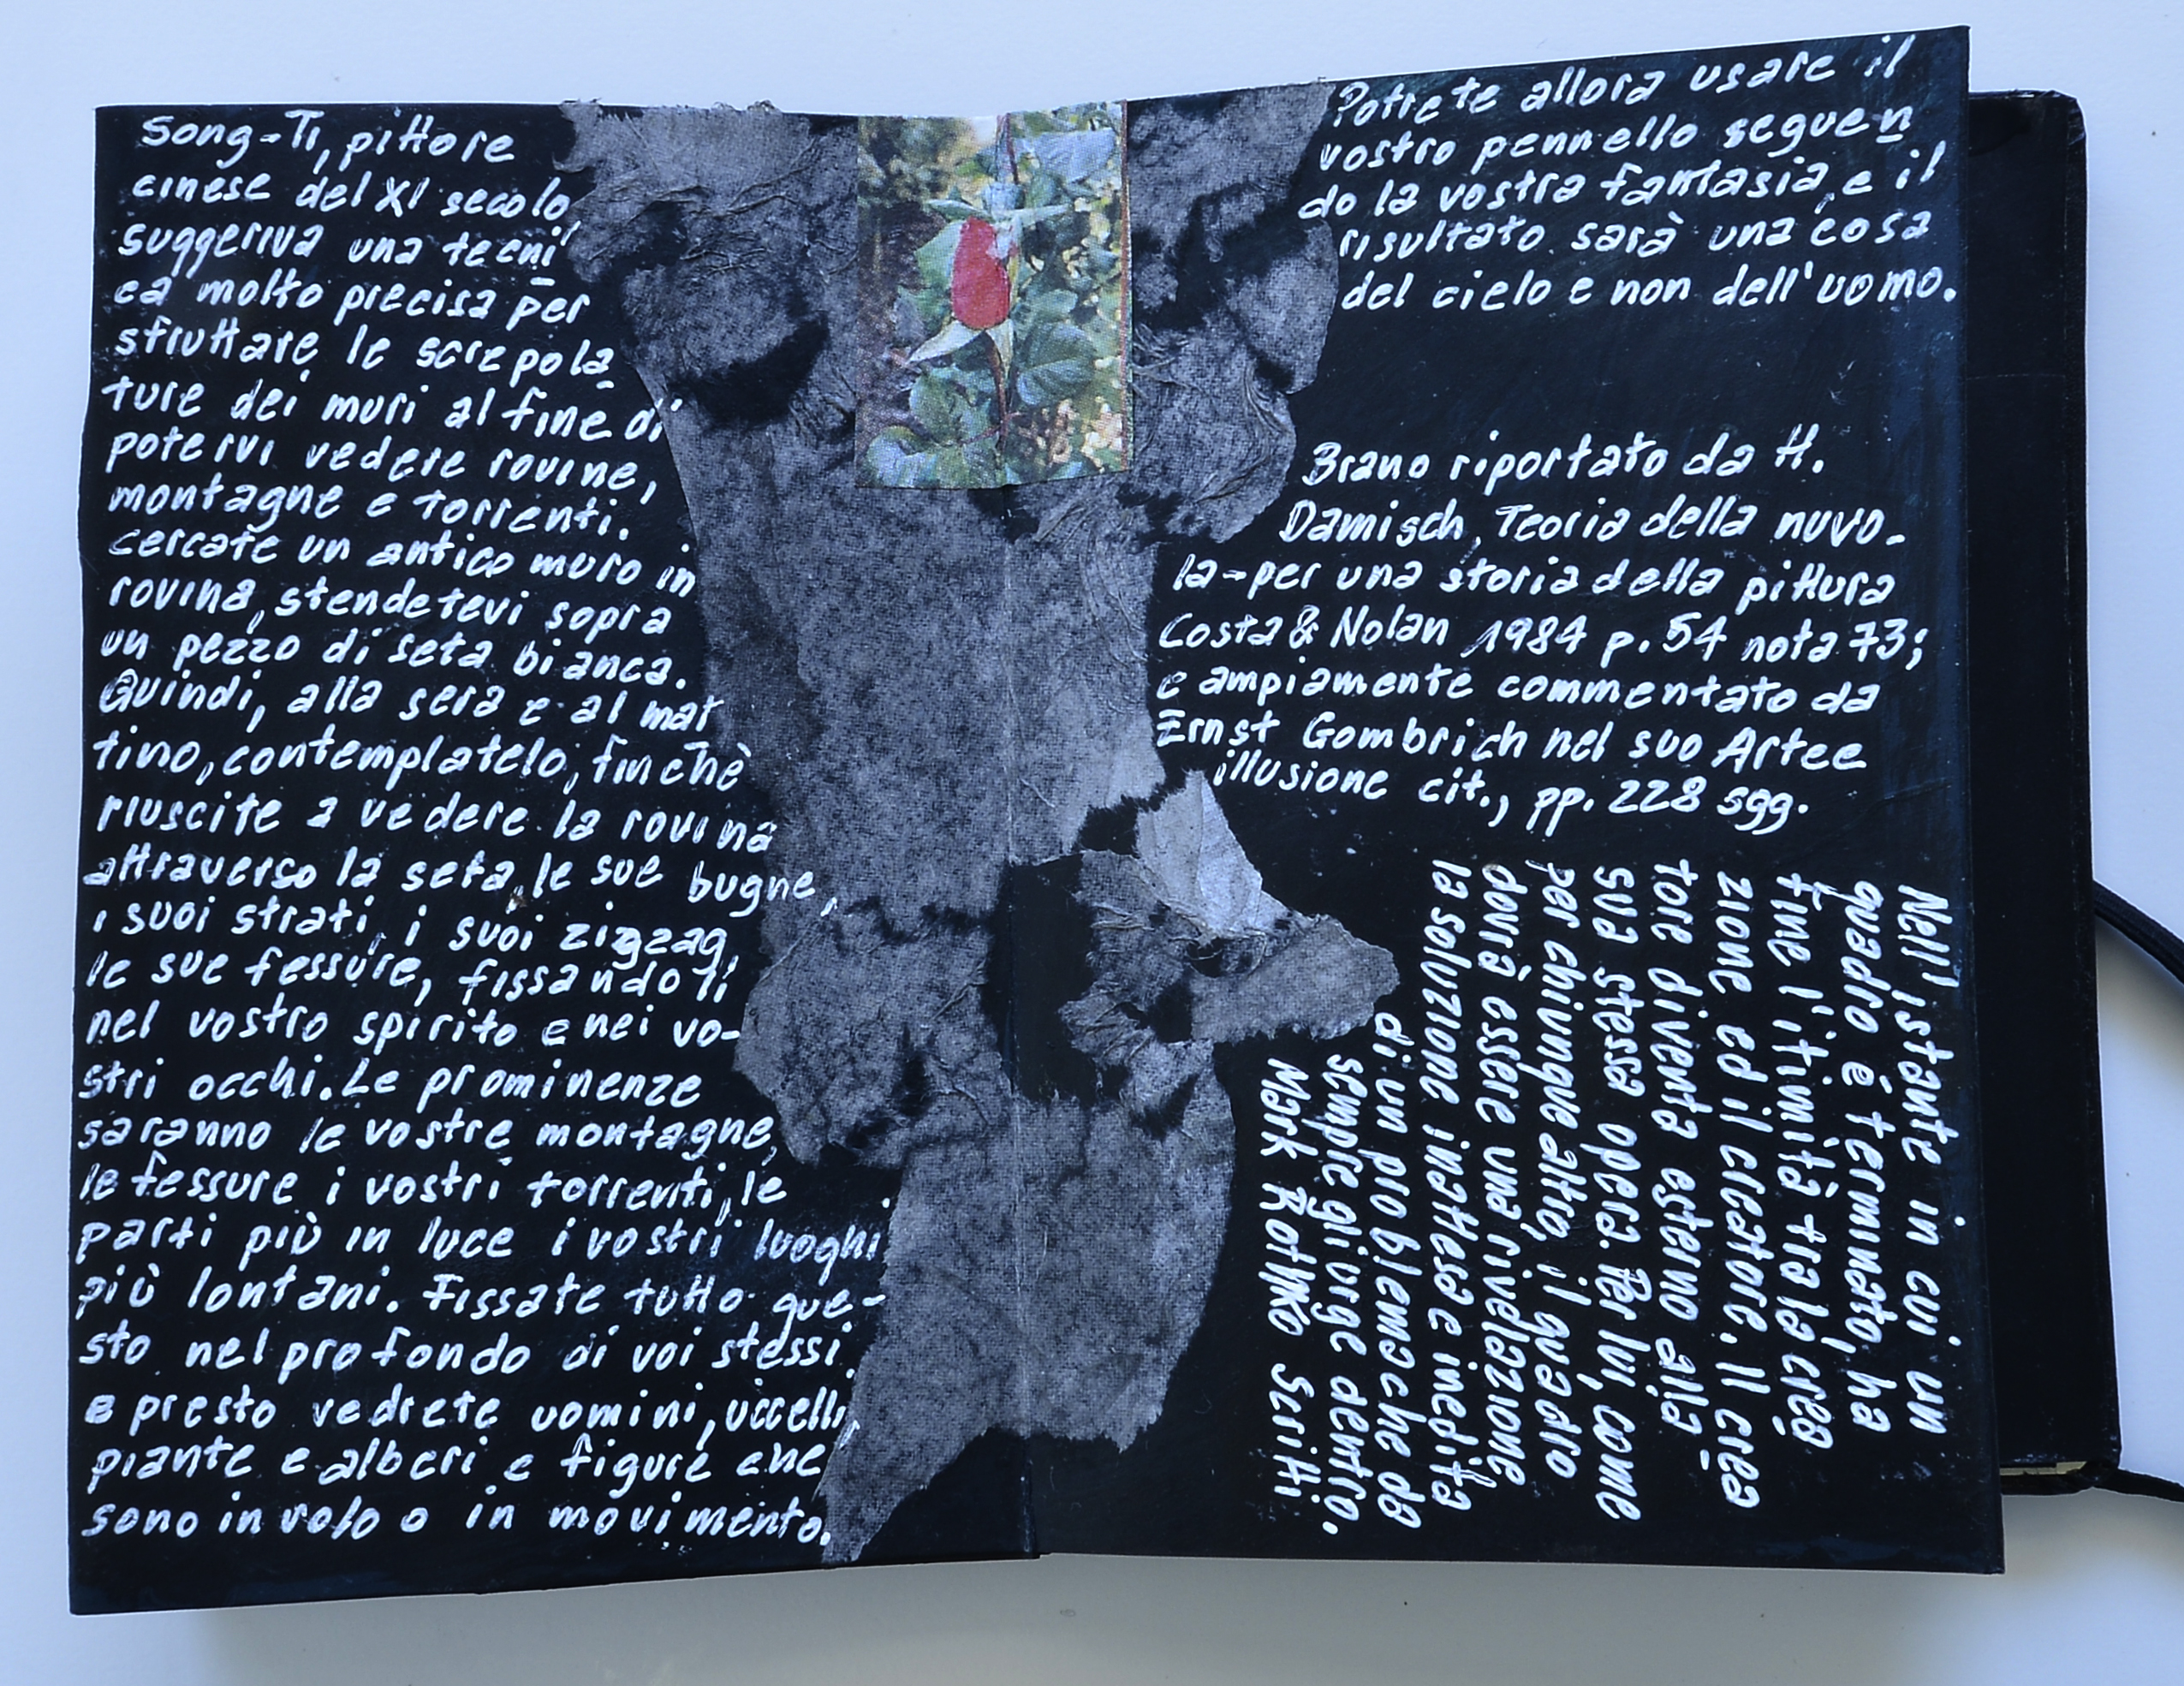 Song-Ti, pittore
cinese del XI secolo,
suggeriva una tecni
ca molto precisa per
sfruttare le screpola
ture dei muri al fine di
potervi vedere rovine,
montagne e torrenti.
cercate un antico muro in
rovina, stendetevi sopra
un pezzo di seta bianca.
Quindi, alla sera e al mat
tino, contemplatelo, finchè
riuscite a vedere la rovina
attraverso la seta, le sue bugne,
i suoi strati, i suoi zigzag,
le sue fessure, fissandoli
nel vostro spirito e nei vo-
stri occhi. Le prominenze
saranno le vostre montagne,
le fessure i vostri torrenti, le
parti più in luce i vostri luoghi
più lontani. Fissate tutto que-
sto nel profondo di voi stessi
e presto vedrete uomini, uccelli,
piante e alberi e figure che
sono in volo o in movimento.
Potrete allora usare il
vostro pennello seguen
do la vostra fantasia, e il
risultato sarà una cosa
del cielo e non dell'uomo.
Brano riportato da H.
Damisch, Teoria della nuvo-
la-per una storia della pittura
Costa & Nolan 1984 p. 54 nota 73;
e ampiamente commentato da
Ernst Gombrich nel suo Arte e
illusione cit., pp. 228 sgg.
Nell'istante in cui un
quadro è terminato, ha
fine l'itimità tra la crea
zione ed il creatore. Il crea
tore diventa esterno alla
sua stessa opera. Per lui, come
per chiunque altro, il quadro
dovrà essere una rivelazione
la soluzione inattesa e inedita
di un problema che da
sempre gli urge dentro.
Mark Rothko Scritti.